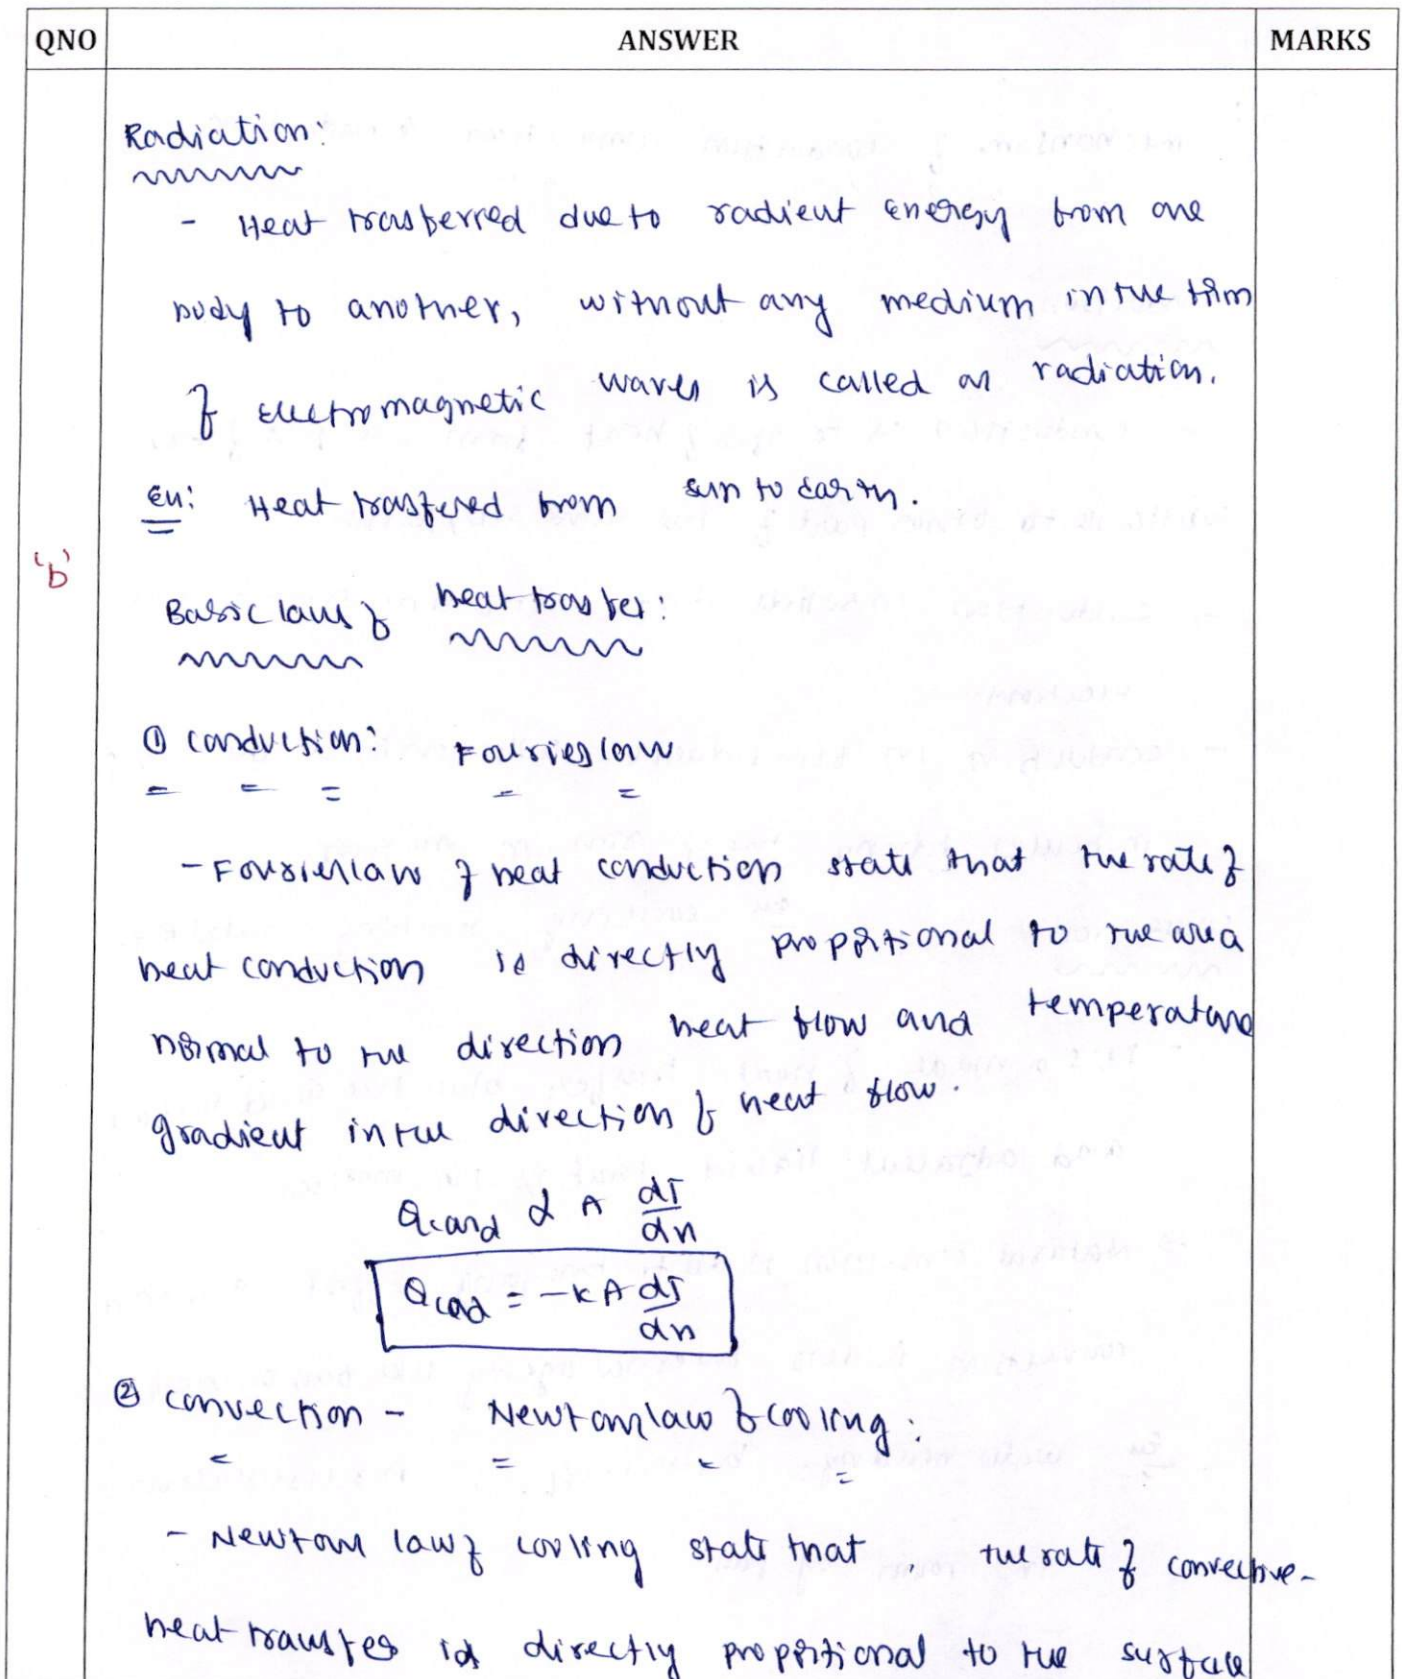 QNO ANSWER MARKS
Radiation:
- Heat trasferred due to radient energy from one
body to another, without any medium in the form
of electromagnetic waves is called as radiation.
Ex: Heat trasfered from sun to earth.
'b'
Basic laws of heat trasfer:
① conduction: Fouries law
- Fourier law of heat conduction state that the rate of
heat conduction is directly proportional to the area
normal to the direction heat flow and temperature
gradient in the direction of heat flow.
Qcond α A dT/dx
Qcod = -KA dT/dx
② convection - Newton law of cooling:
- Newton law of cooling state that, the rate of convective-
heat transfer is directly proportional to the surface